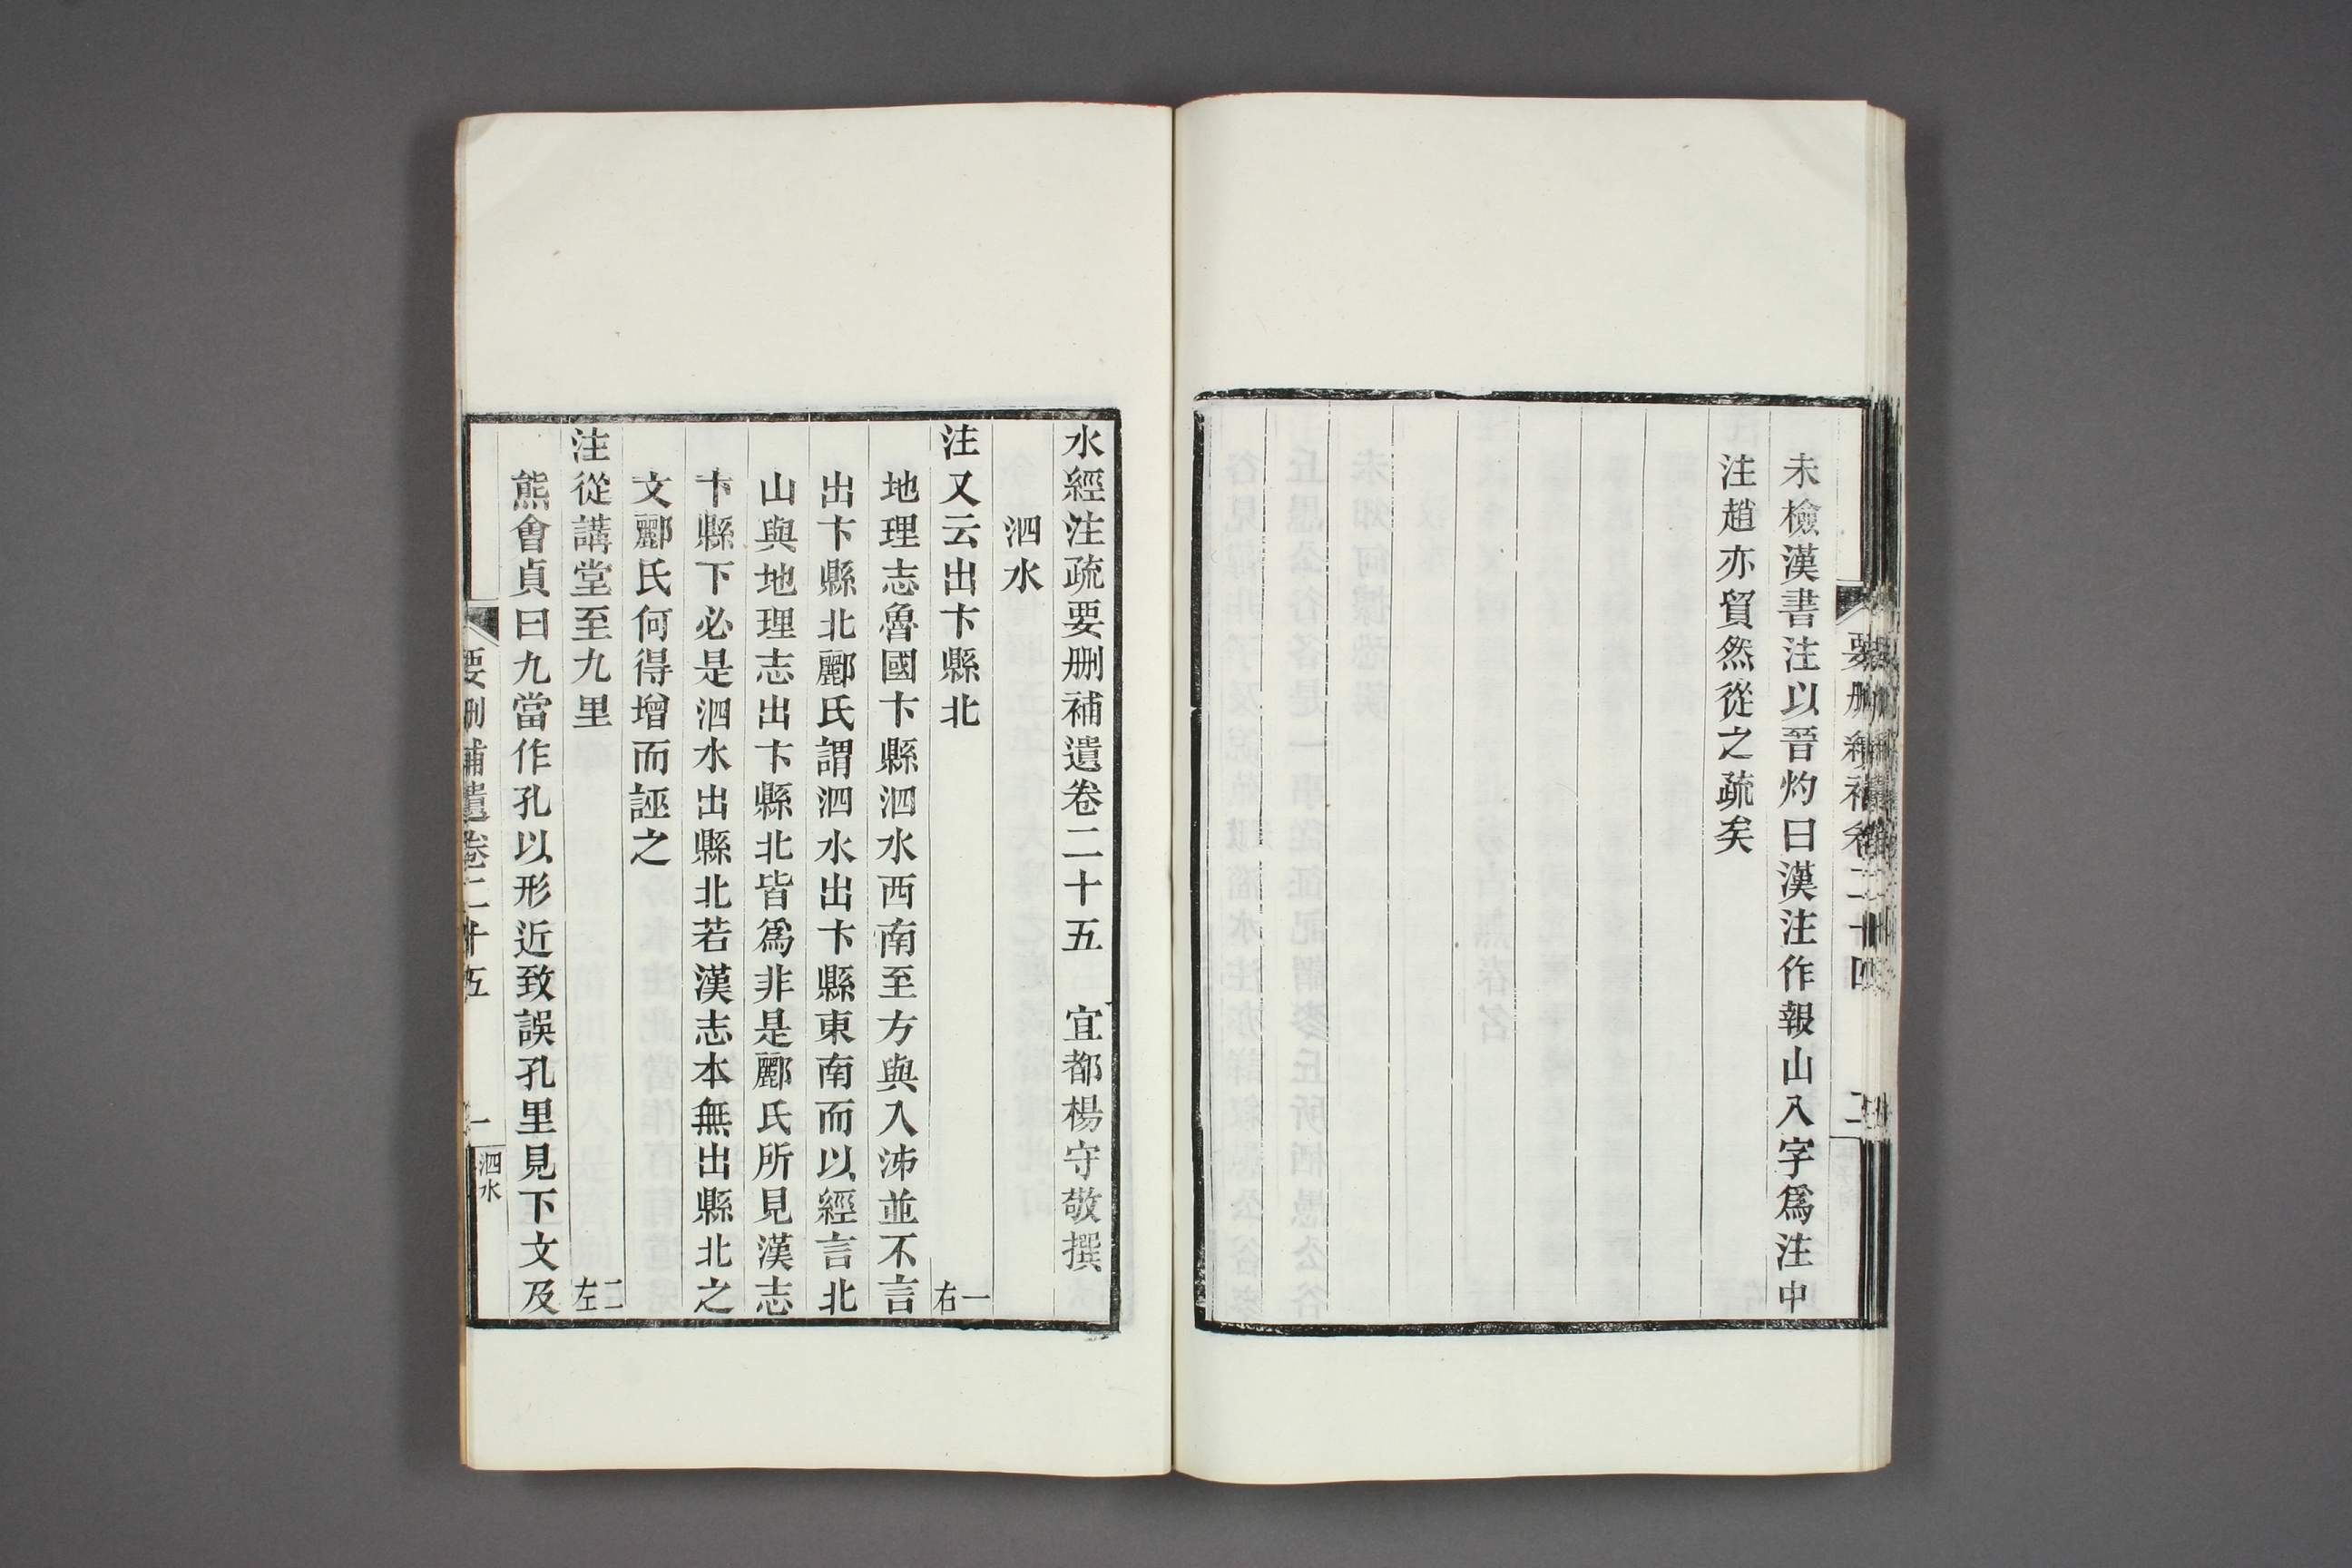 未檢漢書注以晉灼曰漢注作報山入字爲注中
注趙亦貿然從之疏矣
水經注疏要刪補遺卷二十五　宜都楊守敬撰
泗水
注又云出卞縣北　一右
地理志魯國卞縣泗水西南至方與入沛並不言
出卞縣北酈氏謂泗水出卞縣東南而以經言北
山與地理志出卞縣北皆爲非是酈氏所見漢志
卞縣下必是泗水出縣北若漢志本無出縣北之
文酈氏何得增而誣之
注從講堂至九里　二左
熊會貞曰九當作孔以形近致誤孔里見下文及
要刪補遺卷二十五　一　泗水